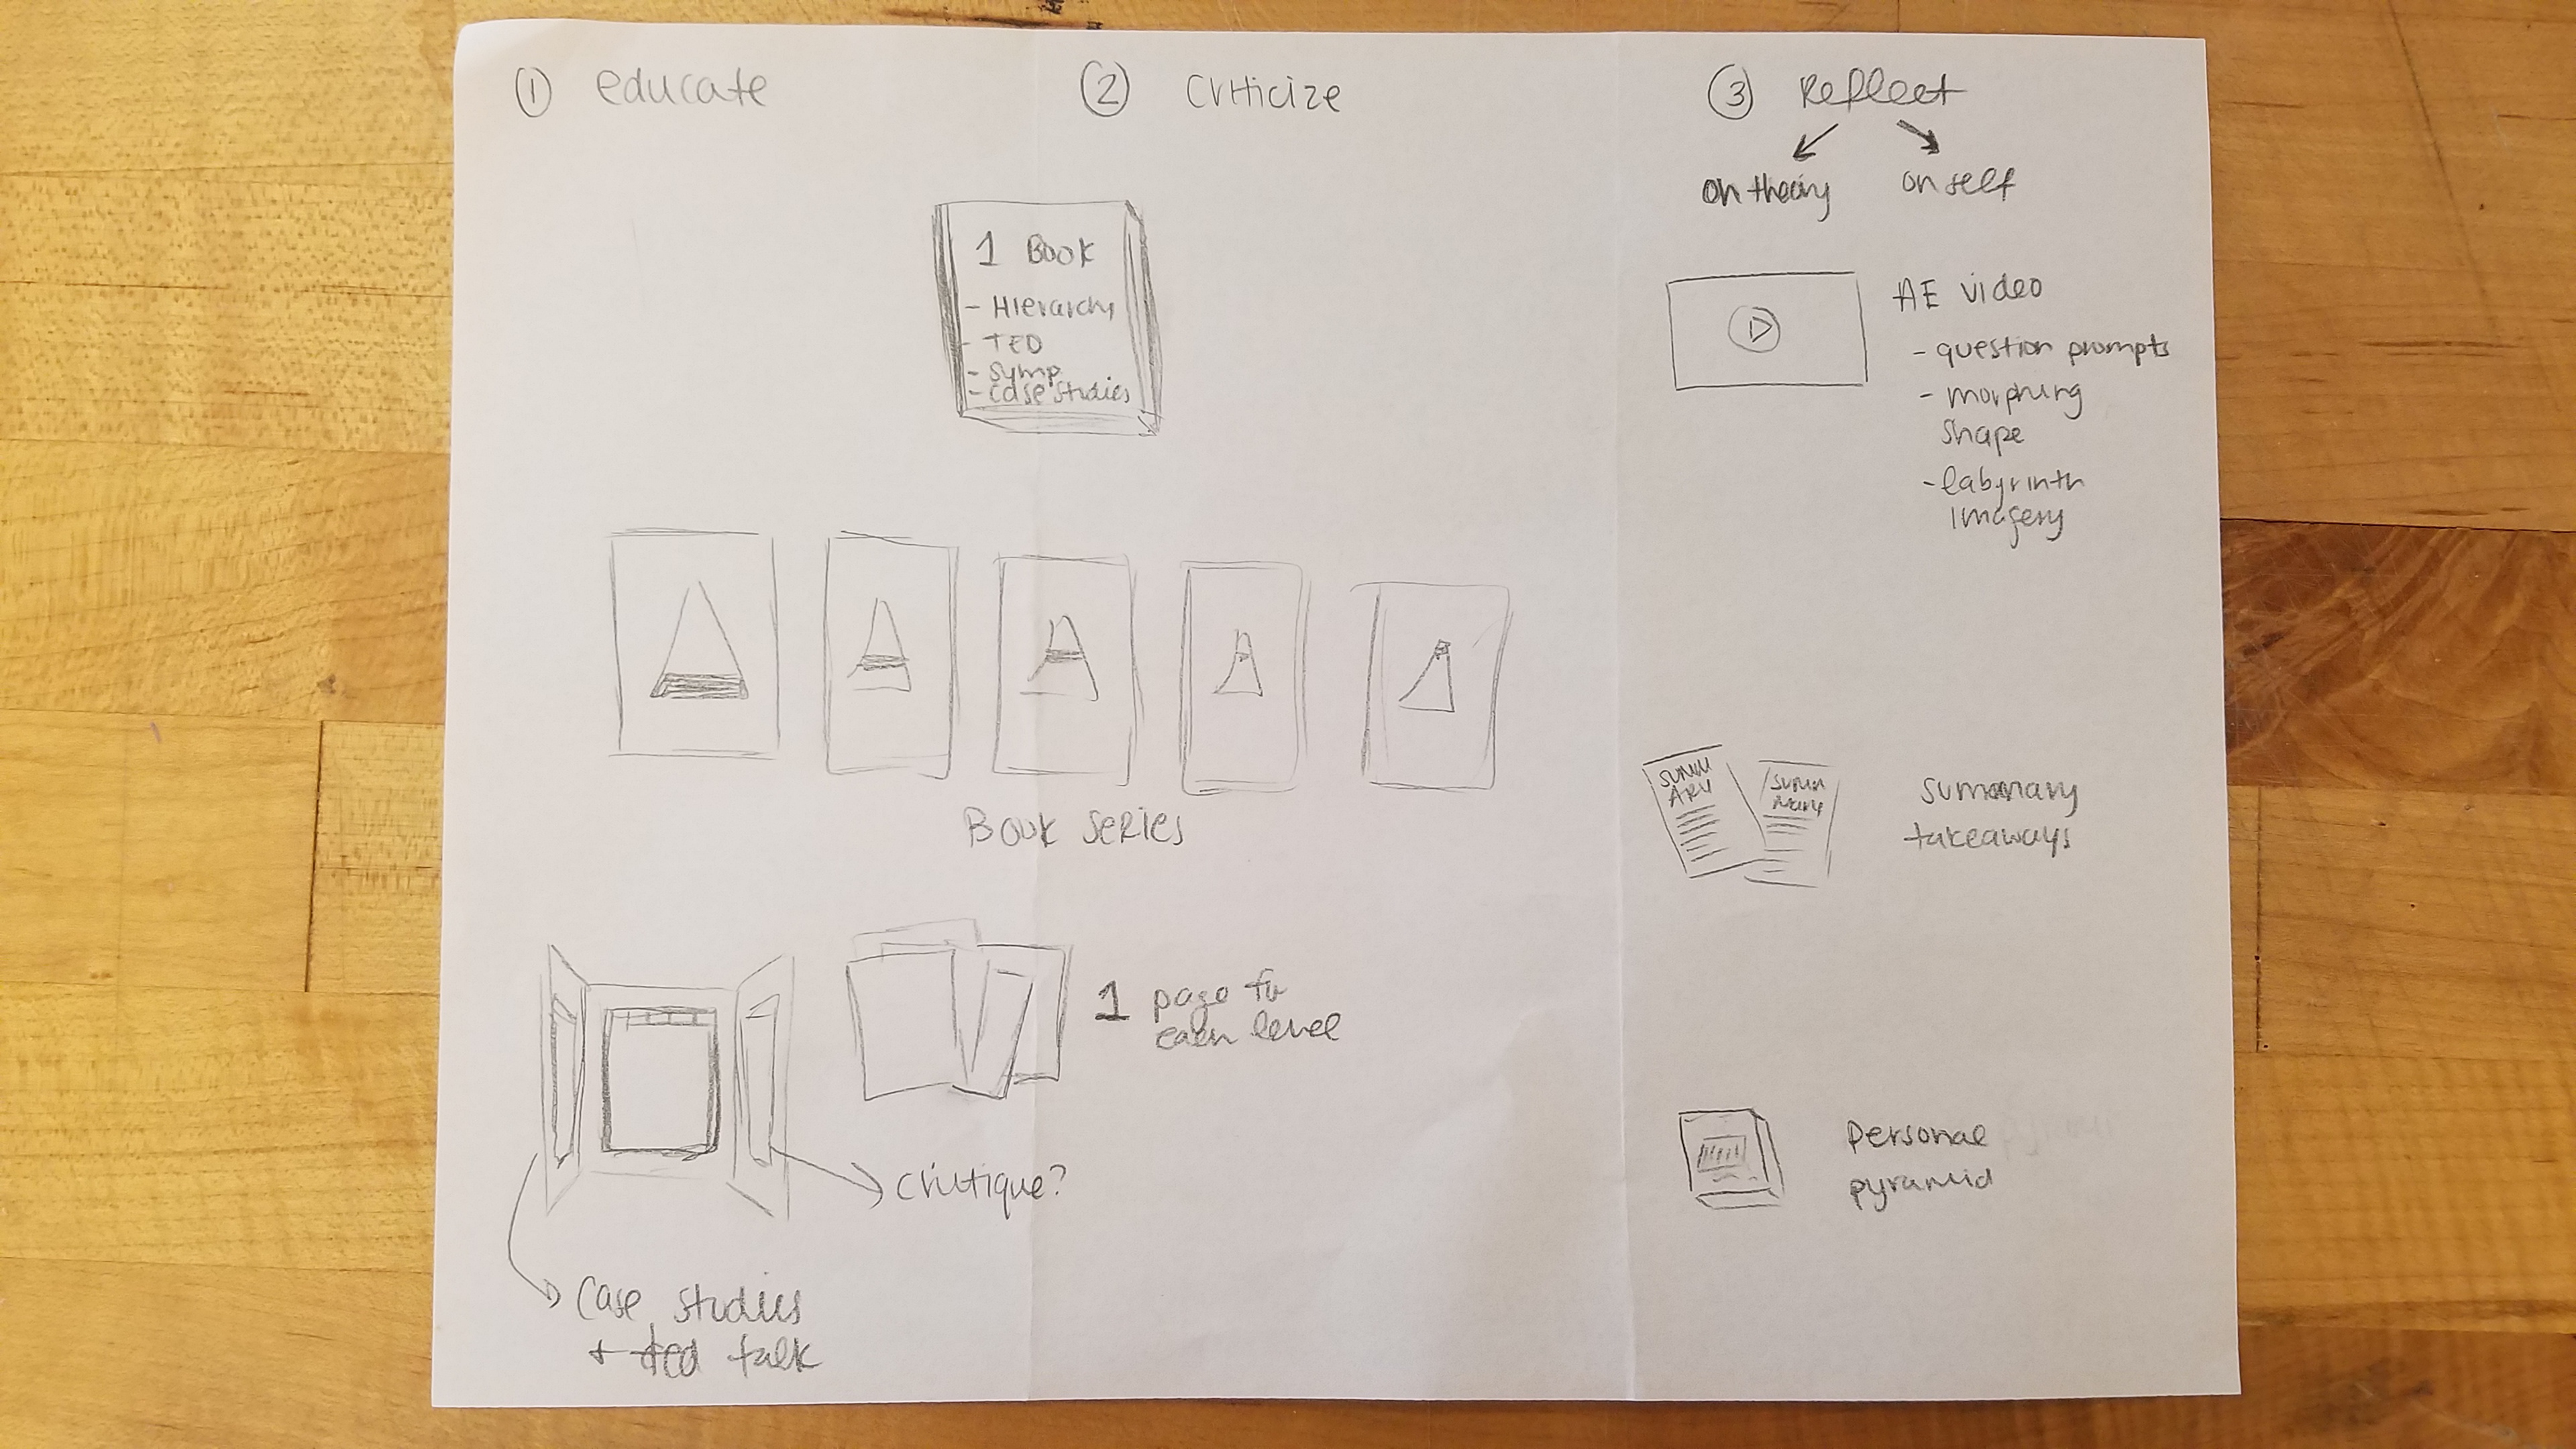 ① educate
② Criticize
③ Reflect
on theory
on self
1 Book
- Hierarchy
- TED
- Symp
- Case Studies
AE video
- question prompts
- morphing
shape
- labyrinth
imagery
Book Series
SUMM
ARY
SUMM
ARY
Summary
takeaways
1 page for
each level
Critique?
Case studies
+ ted talk
Personal
pyramid